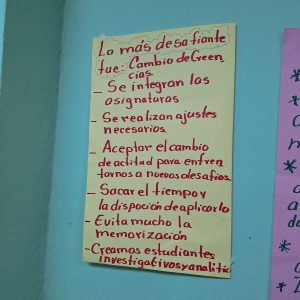 Lo más desafiante
fue: Cambio de Creen
cias.
- Se integran las
asignaturas
- Se realizan ajustes
necesarios.
- Aceptar el cambio
de actitud para enfren
tarnos a nuevos desafios.
- Sacar el tiempo y
la dispoción de aplicarlo
- Evita mucho la
memorización
- Creamos estudiantes
investigativos y analitic